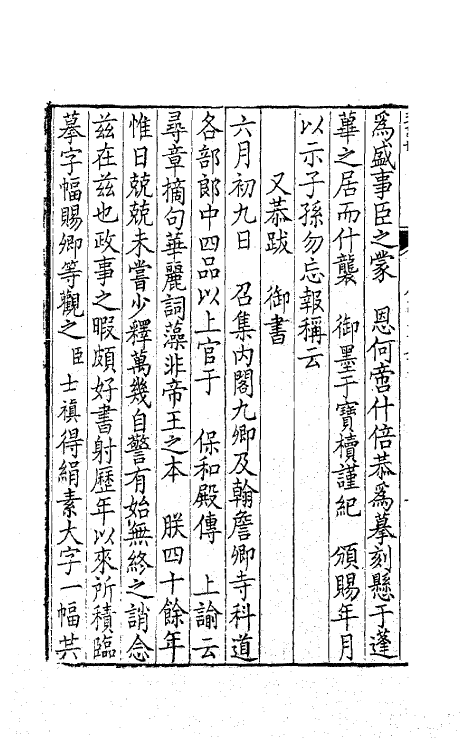 爲盛事臣之蒙　恩何啻什倍恭爲摹刻懸于蓬
蓽之居而什襲　御墨于寶櫝謹紀　頒賜年月
以示子孫勿忘報稱云
又恭跋　御書
六月初九日　召集内閣九卿及翰詹卿寺科道
各部郎中四品以上官于　保和殿傳　上諭云
尋章摘句華麗詞藻非帝王之本　朕四十餘年
惟日兢兢未嘗少釋萬幾自警有始無終之誚念
茲在茲也政事之暇頗好書射歷年以來所積臨
摹字幅賜卿等觀之臣士禛得絹素大字一幅其